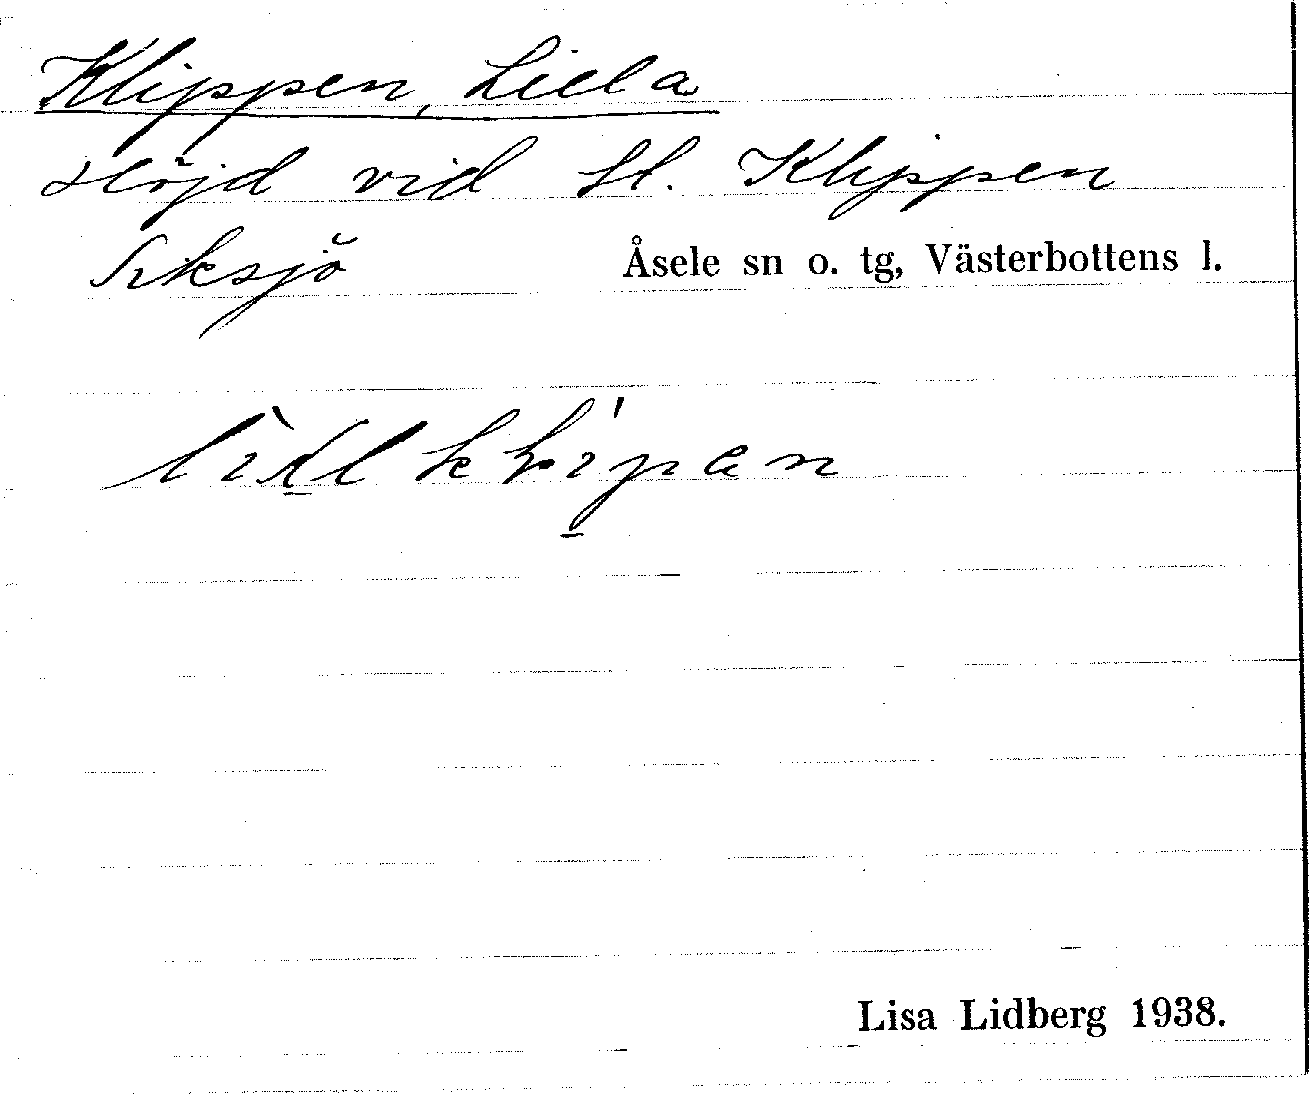 Klippen, Lilla
Höjd vid St. Klippen
Siksjö Åsele sn o. tg, Västerbottens l.
Lisa Lidberg 1938.